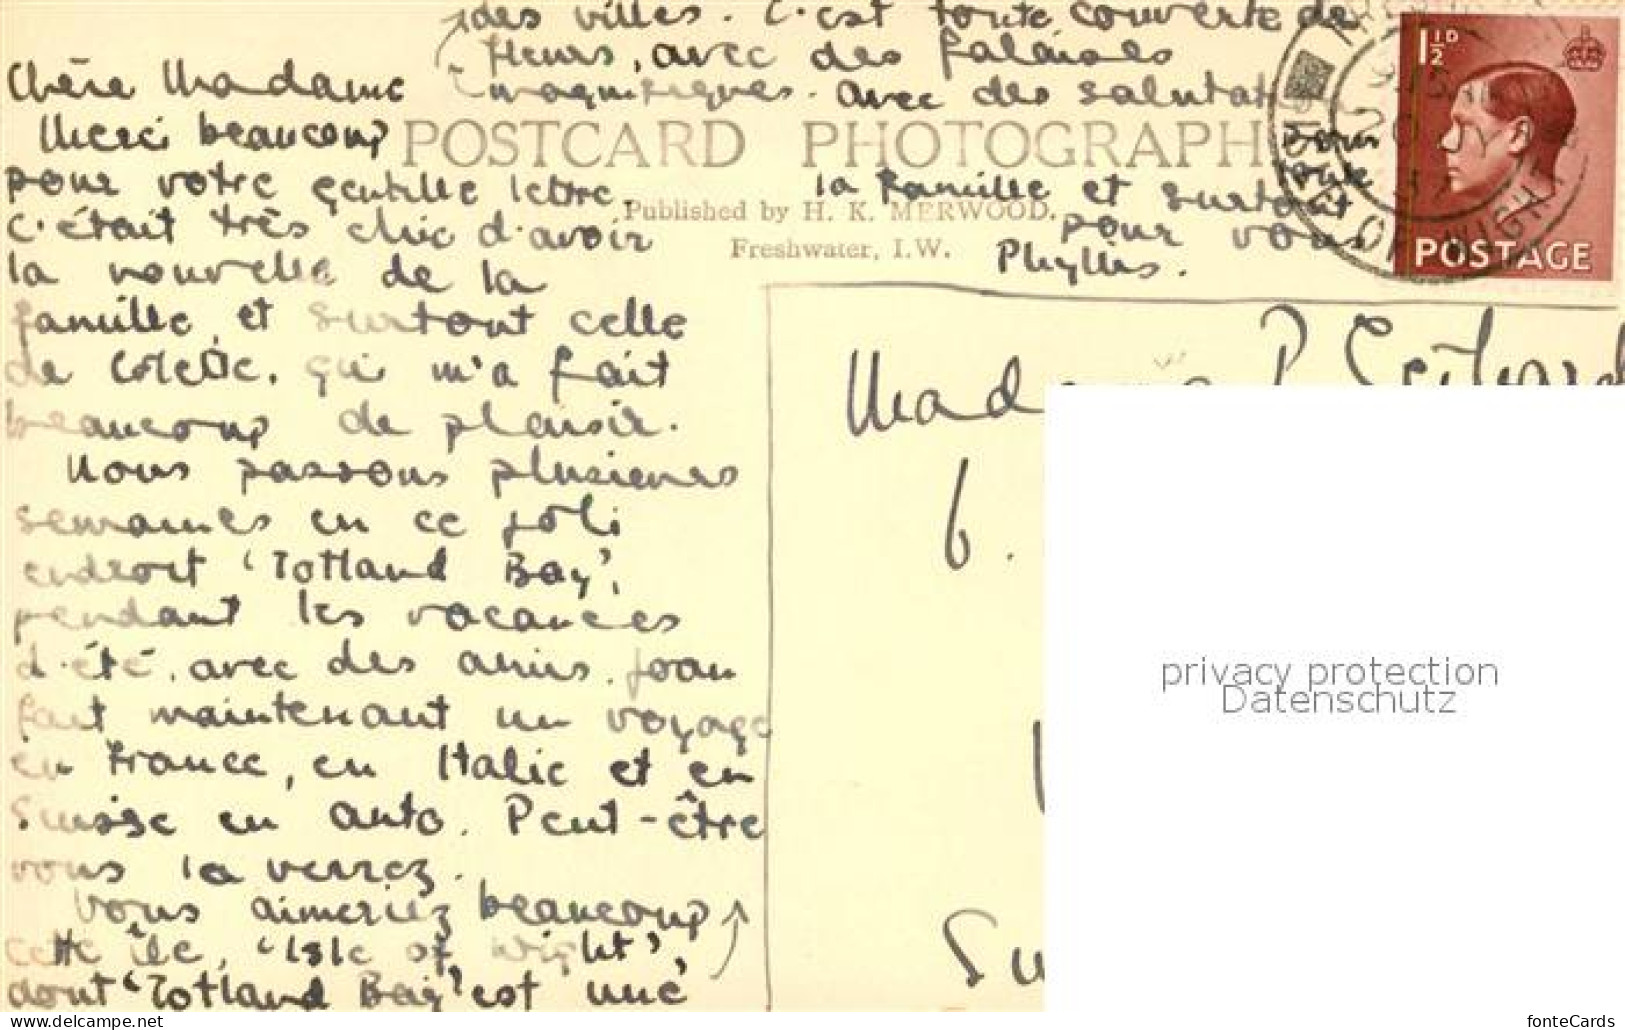 Chère Madame
Merci beaucoup
pour votre gentille lettre.
C'était très chic d'avoir
la nouvelle de la
famille, et surtout celle
de Colette, qui m'a fait
beaucoup de plaisir.
Nous passons plusieurs
semaines en ce joli
endroit 'Totland Bay',
pendant les vacances
d'été, avec des amis. Joan
fait maintenant un voyage
en France, en Italie et en
Suisse en auto. Peut-être
vous la verrez.
Vous aimeriez beaucoup
cette île, 'Isle of Wight',
dont 'Totland Bay' est une
des villes. C'est toute couverte de
fleurs, avec des falaises
magnifiques. Avec des salutat
pour
toute
la famille et surtout
pour vous
Phyllis.
POSTCARD PHOTOGRAPH
Published by H. K. MERWOOD.
Freshwater, I.W.
1½D
POSTAGE
OF WIGHT
Madame P.
6.
Su
privacy protection
Datenschutz
www.delcampe.net
fonteCards